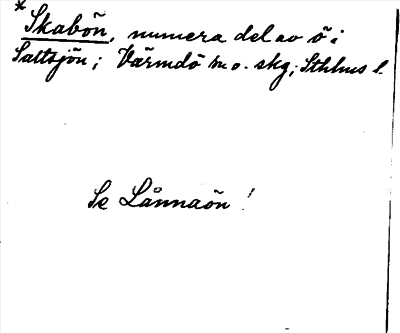 * Skabön, numera del av ö i
Saltsjön; Värmdö m o. skg; Sthlms l.
Se Lånnaön!